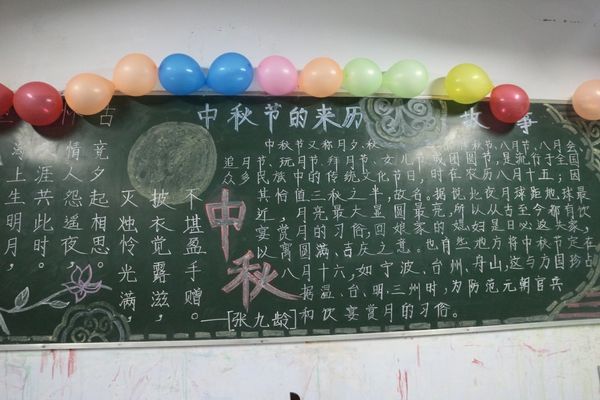 中秋节的来历 故事
中秋
古
上生明月，
涯共此时。
情人怨遥夜，
竟夕起相思。
灭烛怜光满
披衣觉露滋，
不堪盈手赠。
——[张九龄]
中秋节又称月夕、秋 秋节、八月节、八月会
追月节、玩月节、拜月节、女儿节或团圆节，是流行于全国
众多民族中的传统文化节日，时在农历八月十五；因
其恰值三秋之半，故名。据说此夜月球距地球最
近，月亮最大最圆最亮，所以从古至今都有饮
宴赏月的习俗，回娘家的媳妇是日必返夫家，
以寓圆满、吉庆之意。也 地方将中秋节定在
八月十六，如宁波、台州、舟山，这与方国珍占
据温、台、明三州时，为防范元朝官兵
和饮宴赏月的习俗。